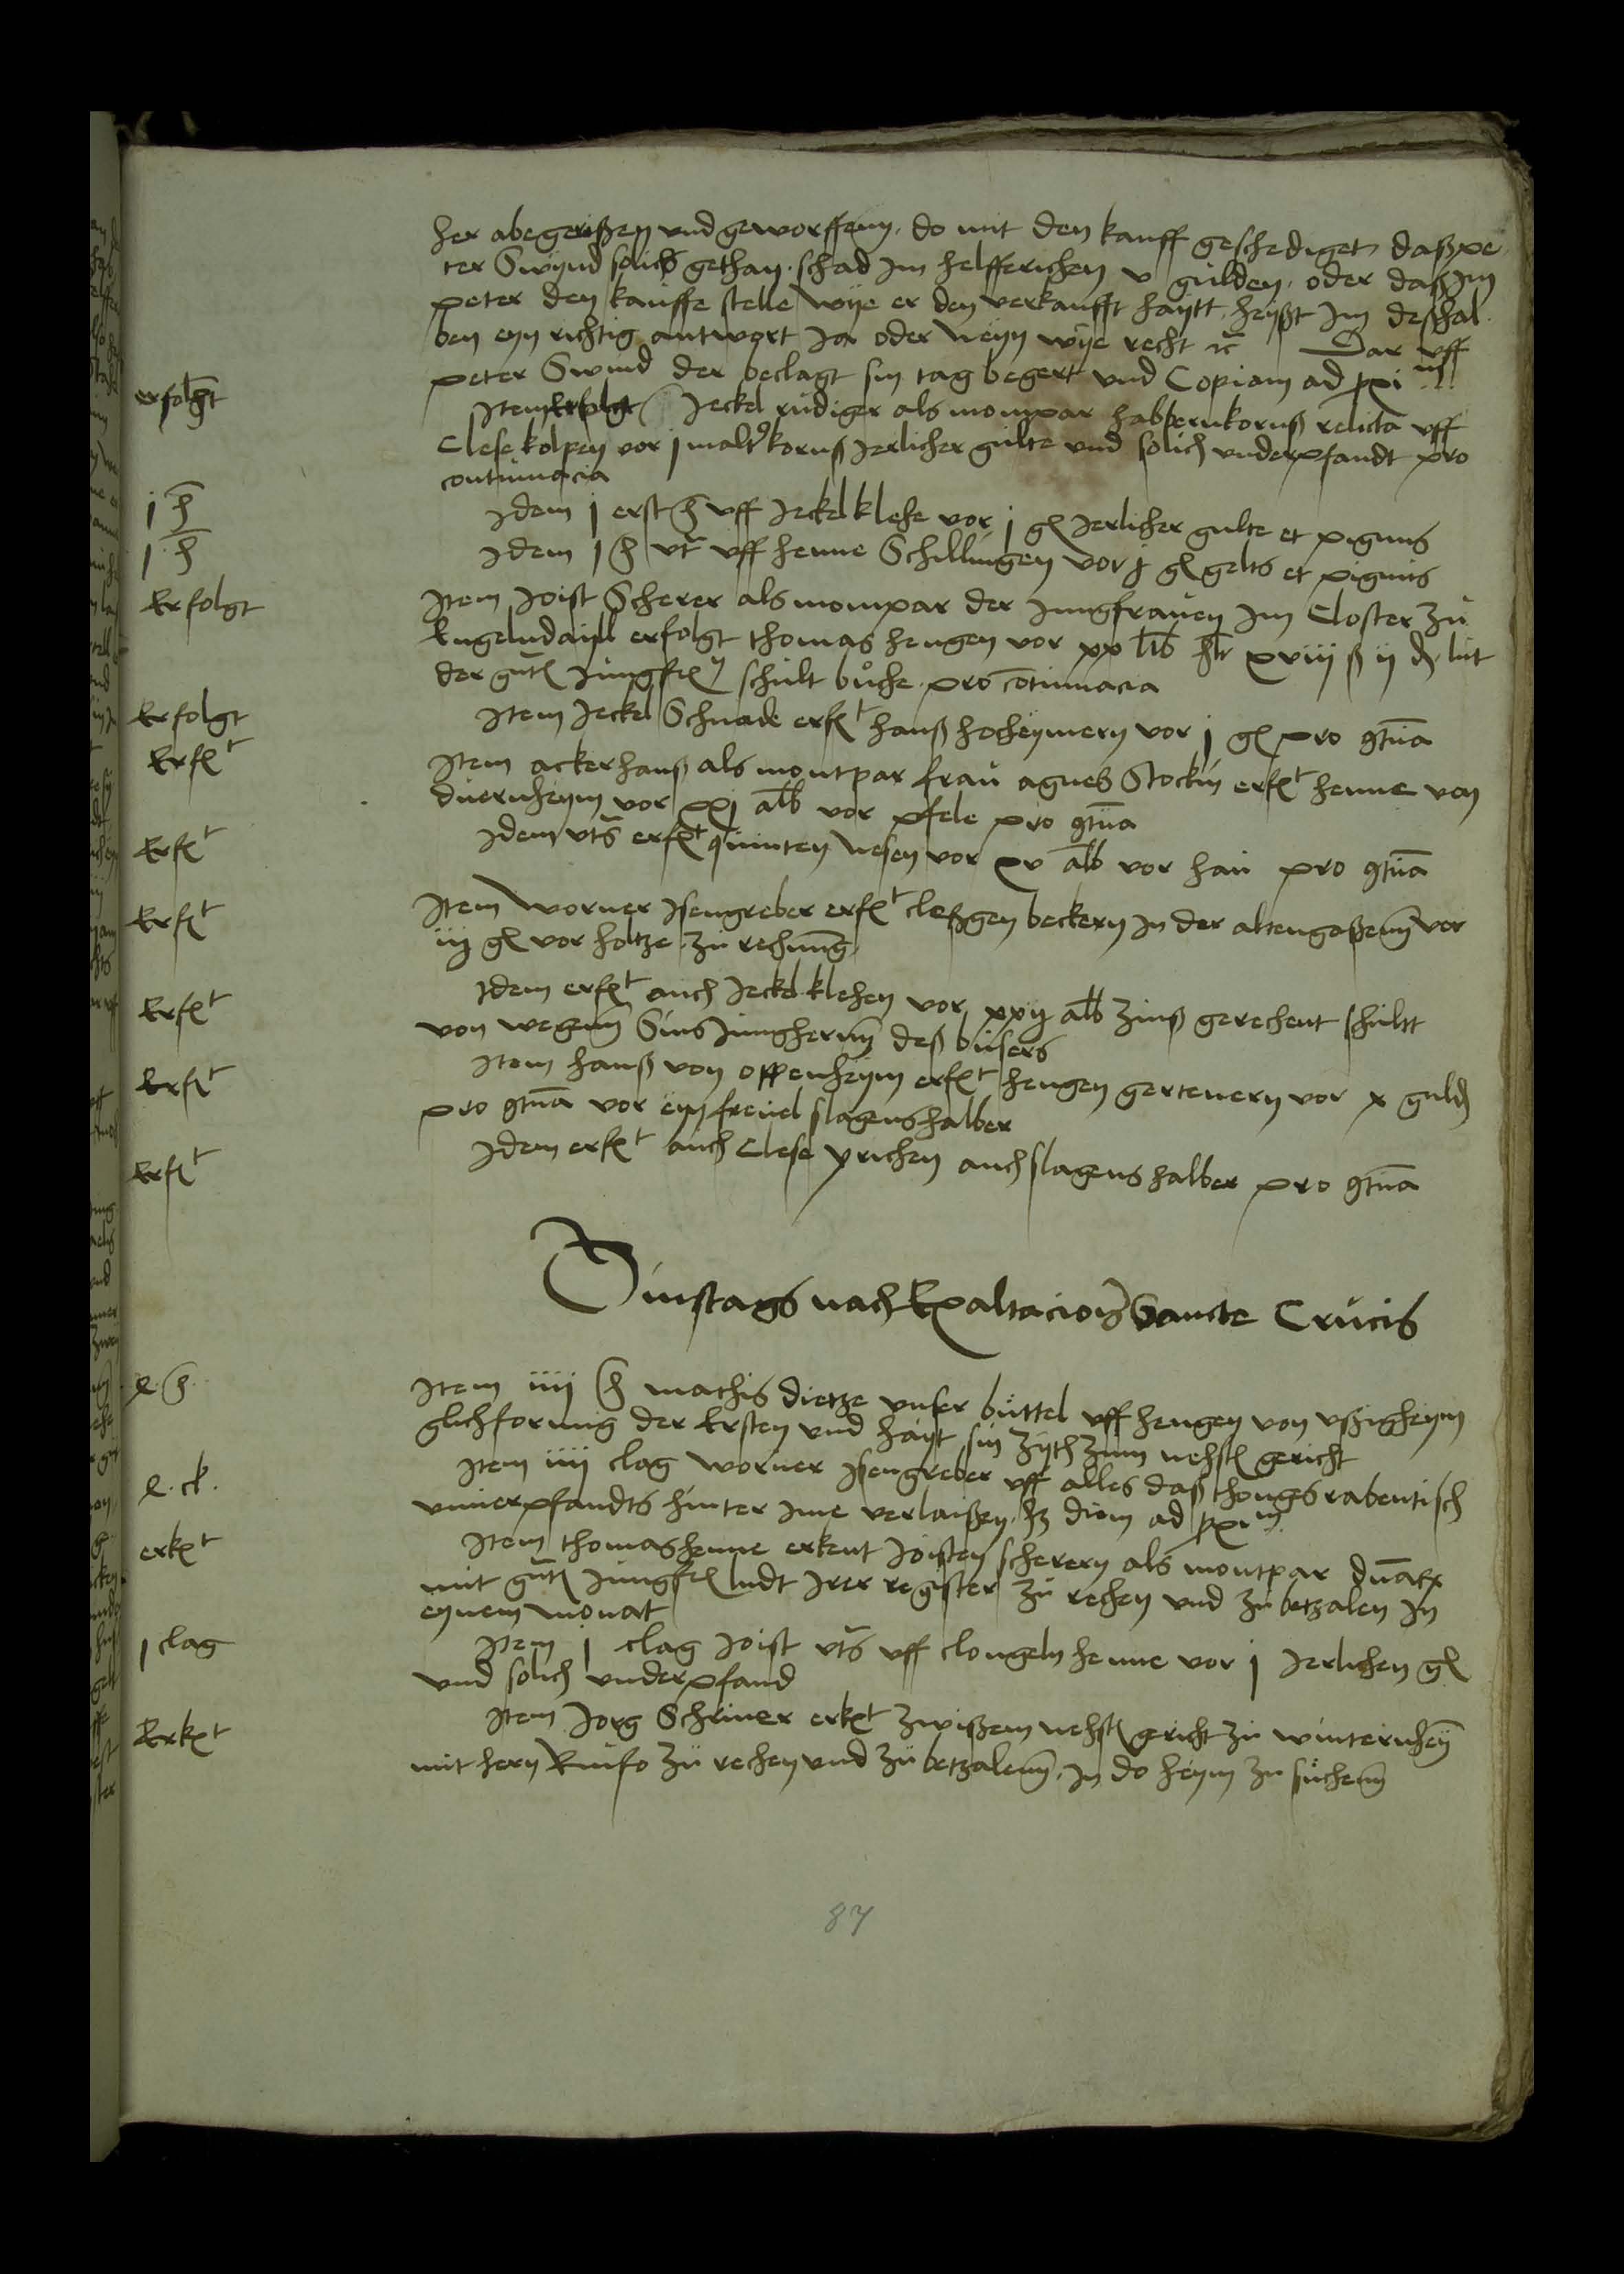 her abegerißen und geworffenn, do mit den kauff geschediget, daß pe
ter Swynd solichs gethan, schad im helfferichen v gulden, oder daß im
peter den kauffe stelle wye er den verkaufft haytt, heyßt im deßhal
ben eyn richtig antwort Ja oder neyn wye recht ꝛc Dar uff
peter Swind der beclagt sin tag begert und Copiam ad proxim
erfolgt
Item Erfolgt Jeckel rudiger als mompar habbernkornß relicta uff
Clese kolpen vor j maltˀ kornß jerlicher gulte und solich underpfandt pro
contumacia
j h
Idem j erst h uff Jeckel klehe vor j gl jerlicher gulte et pignus
j h
Idem j h ut uff henne Schillingen vor j gl gelts et pignus
Erfolgt
Item Joist Scherer als mompar der Jungfrauen im Closter zu
Engelndaill erfolgt thomas hengen vor xx lib hlr xviij ß ij d, lut
der gute Jungfr schult buche pro cotumacia
Erfolgt
Item Jeckel Schnade erf t hanß hocheymern vor j gl pro gtua
Erf t
Item ackerhanß als montpar frau agnes Stockin erf t henne von
duernheym vor xxj alb vor pfele pro gtua
Erf t
Idem uts erf t quinten wesen vor xv alb vor hau pro gtua
Erf t
Item worner Isengreber erf t cleßgen beckern in der altengaßenn vor
iij gl vor holtze zu rechnung
Erf t
Idem erf t auch Jeckel klehen vor xxij alb zinß gerechent schultt
von wegenn Sins Jungherrnn deß busers
Erf t
Item hanß von oppenheym erf t hengen gertenern vor x guld
pro gtua vor eyn freuel slagenshalber
Erf t
Idem erf t auch Clese yrichen auch slagenshalber pro gtua
Dinstags nach Exaltacionis Sancte Crucis
e. h
Item iiij h mathis dietze unser buttel uff hengen von ussigheym
glichforung der Ersten und hayt sin zyth zum nehst gericht
e. cl.
Item iiij clag worner Isengreber uff alles daß thonges rabentisch
ummerpfandts hinter ime verlaißen, hz diem ad prxim
erk t
Item thomashenne erkent Joisten scherern als montpar duarx
mit gut Jungfr ludt irer register zu rechen und zu betzalen in
eynem monat
j clag
Item j clag Joist uts uff clongeln henne vor j jerlichen gl
und solich underpfand
Erk t
Item Jorg Schriner erk t zwißem nehst gericht zu winternheym
mit hern Ruifo zu rechen und zu betzalenn, in do heym zu suchenn
87